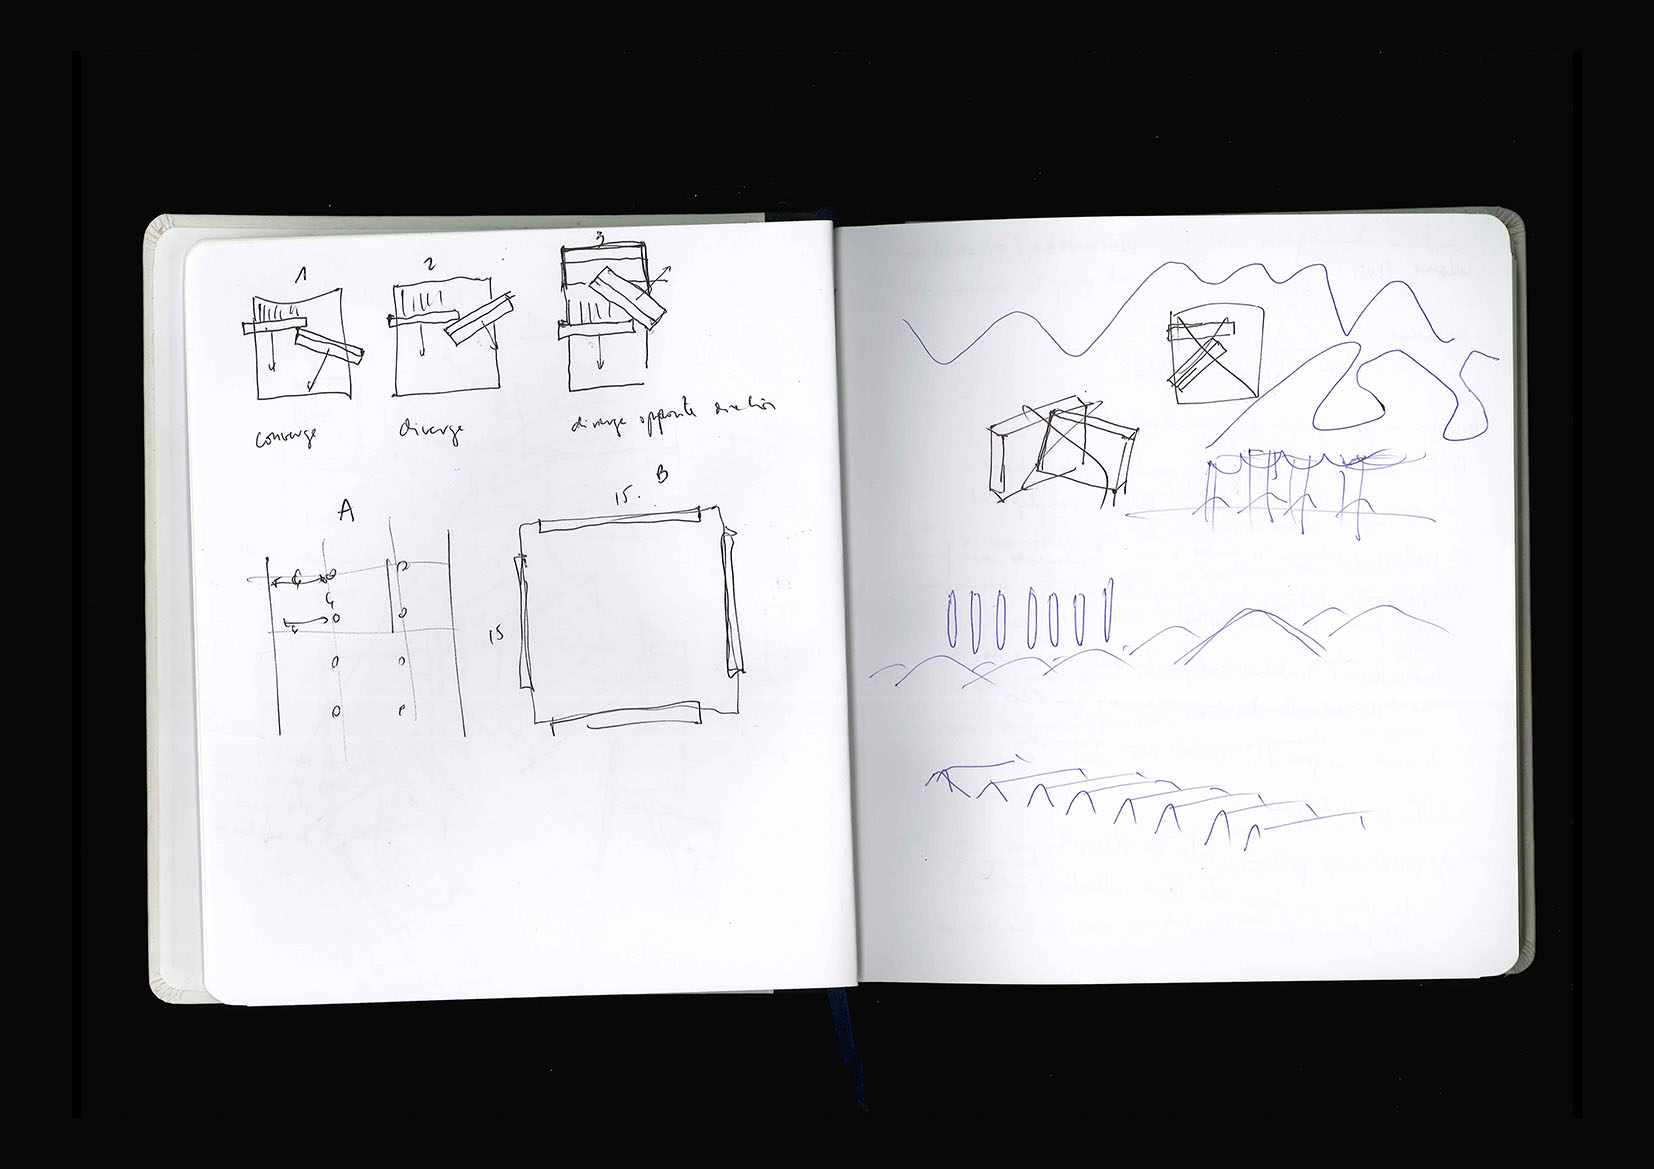 1
2
3
converge
diverge
diverge opposite direction
A
B
15.
15